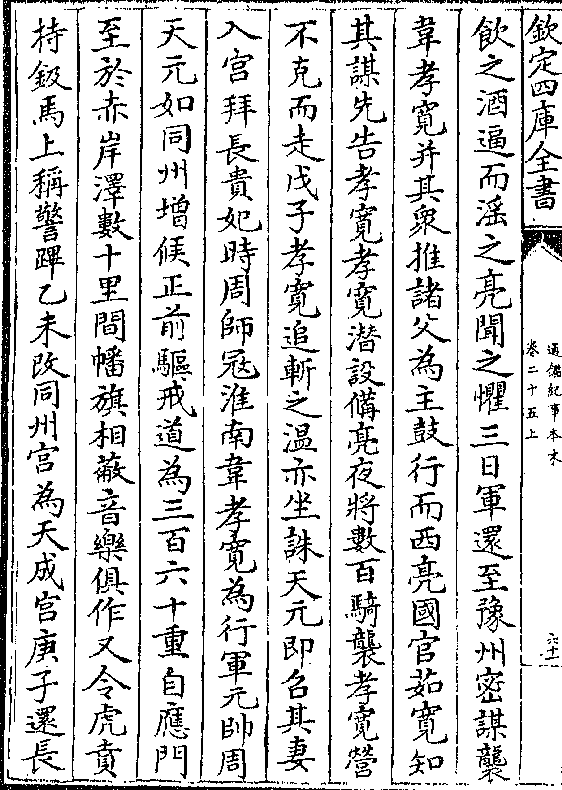 欽定四庫全書
通鑑紀事本末
卷二十五上
六十一
飲之酒逼而淫之亮聞之懼三日軍還至豫州密謀襲
韋孝寛并其衆推諸父為主鼓行而西亮國官茹寛知
其謀先告孝寛孝寛潜設備亮夜將數百騎襲孝寛營
不克而走戊子孝寛追斬之温亦坐誅天元即召其妻
入宫拜長貴妃時周師冦淮南韋孝寛為行軍元帥周
天元如同州增候正前驅戒道為三百六十重自應門
至於赤岸澤數十里間幡旗相蔽音樂俱作又令虎賁
持鈒馬上稱警蹕乙未改同州宫為天成宫庚子還長